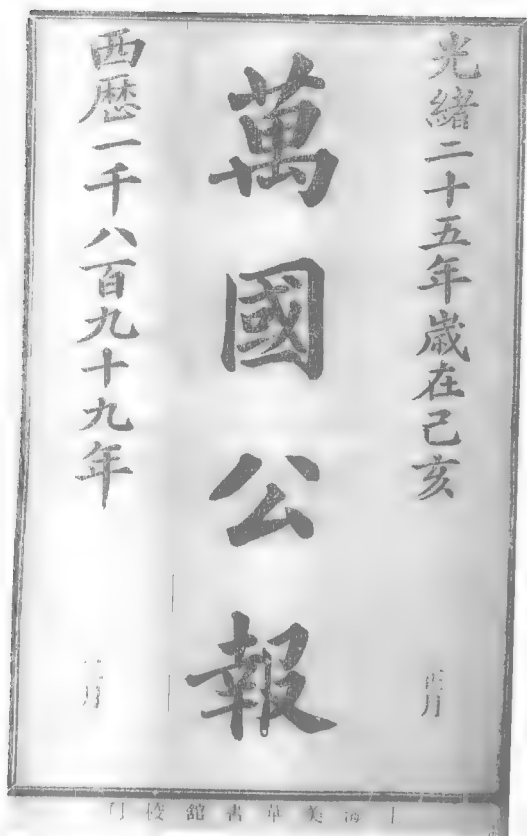 光緒二十五年歲在己亥 正月
萬國公報
西歷一千八百九十九年 月
海美華書館校刊